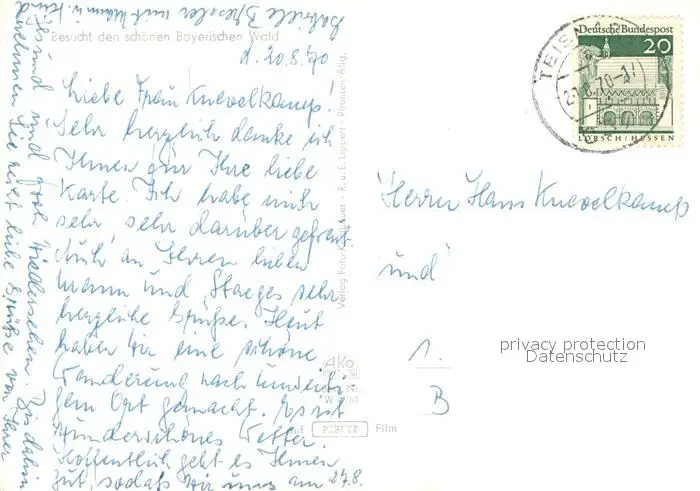 Besucht den schönen Bayerischen Wald
d. 20.8.70
Liebe Frau Knevelkamp!
Sehr herzlich danke ich
Ihnen für Ihre liebe
Karte. Ich habe mich
sehr, sehr darüber gefreut
Auch an Ihren lieben
Mann und sehr
herzliche Grüße. Heut
haben wir eine schöne
Wanderung nach
gem Ort gemacht. Es ist
Wunderschönes Wetter.
Hoffentlich geht es Ihnen
gut, sodaß wir uns am 27.8.
gesund und froh Wiedersehen. Bis dahin
nehmen Sie recht liebe Grüße von Ihrer
Gabriele mit Mann u. Kind
Verlag Foto
R. u. E. Lippert
Ako
PERUTZ Film
Deutsche Bundespost
20
LORSCH/HESSEN
TEISNACH
Herrn Hans Knevelkamp
und
1.
B
privacy protection
Datenschutz